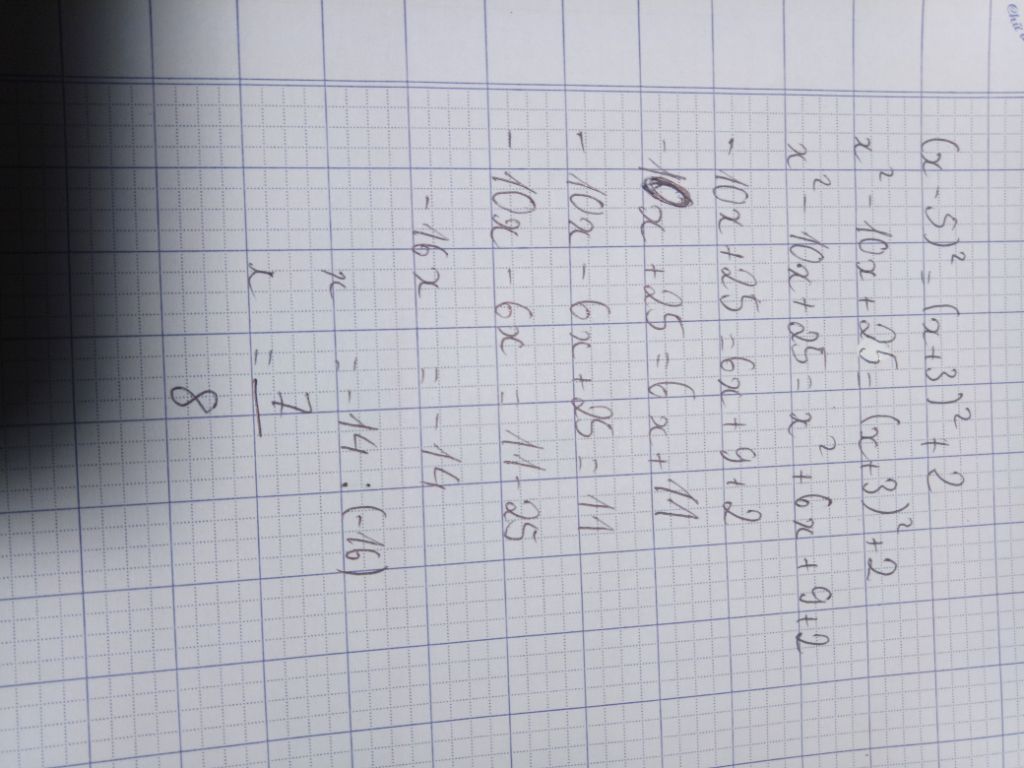 (x - 5)² = (x+3)² + 2
x² - 10x + 25 = (x+3)² + 2
x² - 10x + 25 = x² + 6x + 9+2
- 10x + 25 = 6x + 9 + 2
- 10x + 25 = 6x + 11
- 10x - 6x + 25 = 11
- 10x - 6x = 11 - 25
- 16x = - 14
x = - 14 : (-16)
x = 7/8